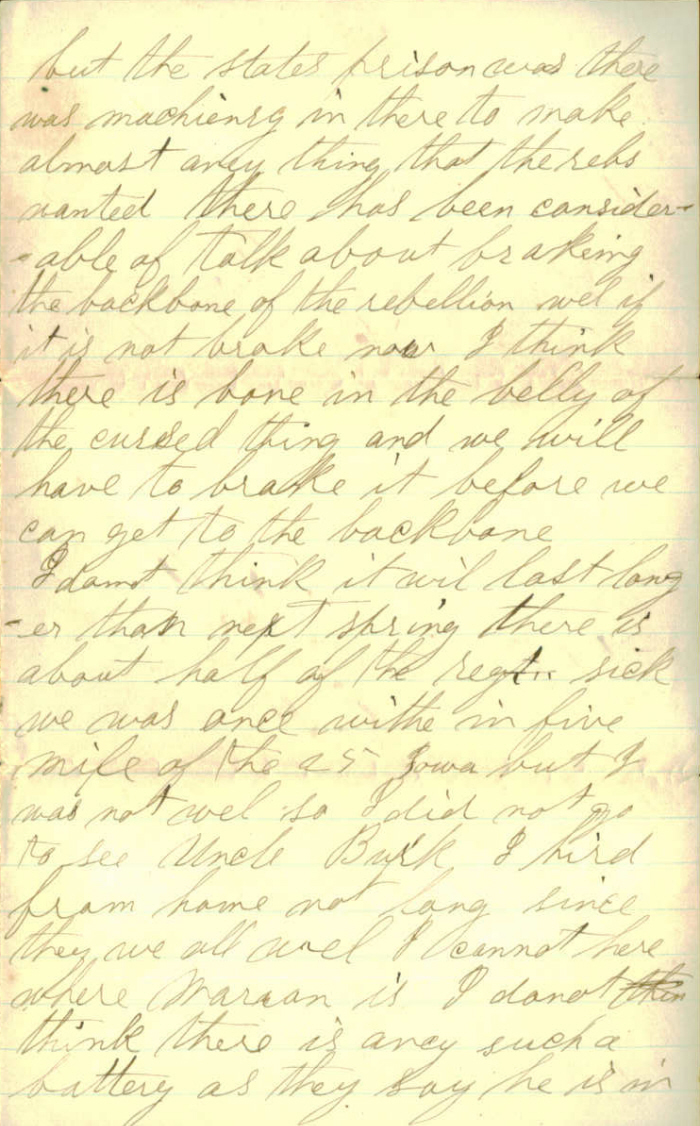 but the states prison was there
was machiensg in there to make
almost aney thing that the rebs
wanted there has been consider-
-able of talk about braking
the backbone of the rebellion wel if
it is not broke now I think
there is bone in the belly of
the cursed thing and we will
have to brake it before we
can get to the backbone
I dont think it wil last long
-er than next spring there is
about half of the regt.. sick
we was once withe in five
mile of the 25 Iowa but I
was not wel so I did not go
to see Uncle Burk I hird
from home not long since
they we all wel I cannot here
where Marean is I donot
think there is aney such a
battery as they say he is in